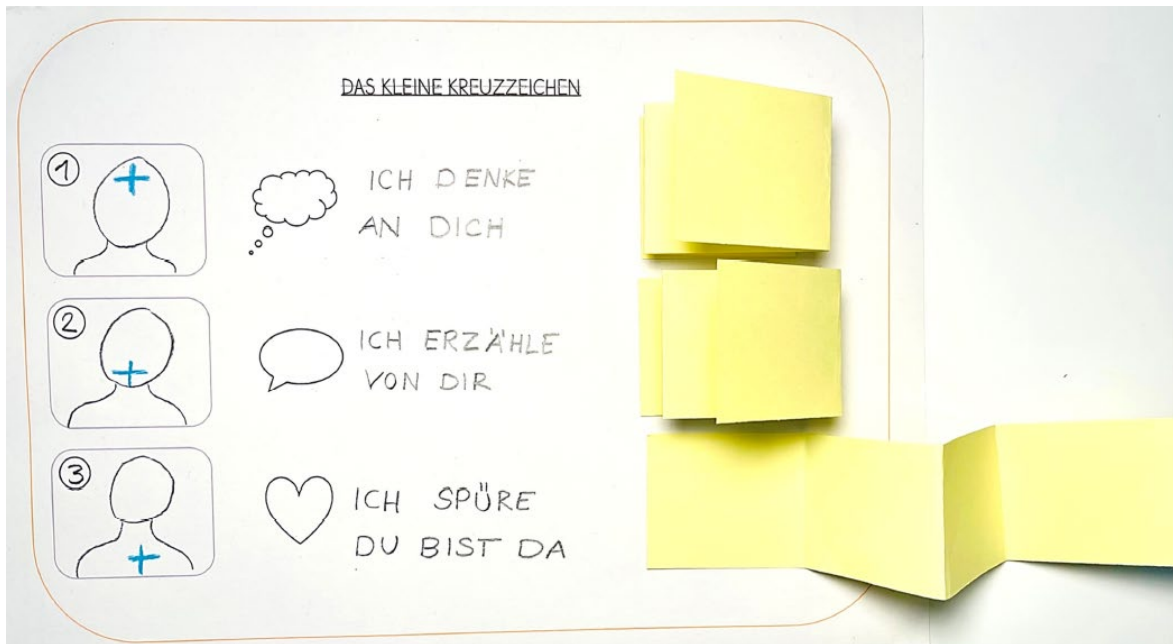 DAS KLEINE KREUZZEICHEN
1
ICH DENKE
AN DICH
2
ICH ERZÄHLE
VON DIR
3
ICH SPÜRE
DU BIST DA